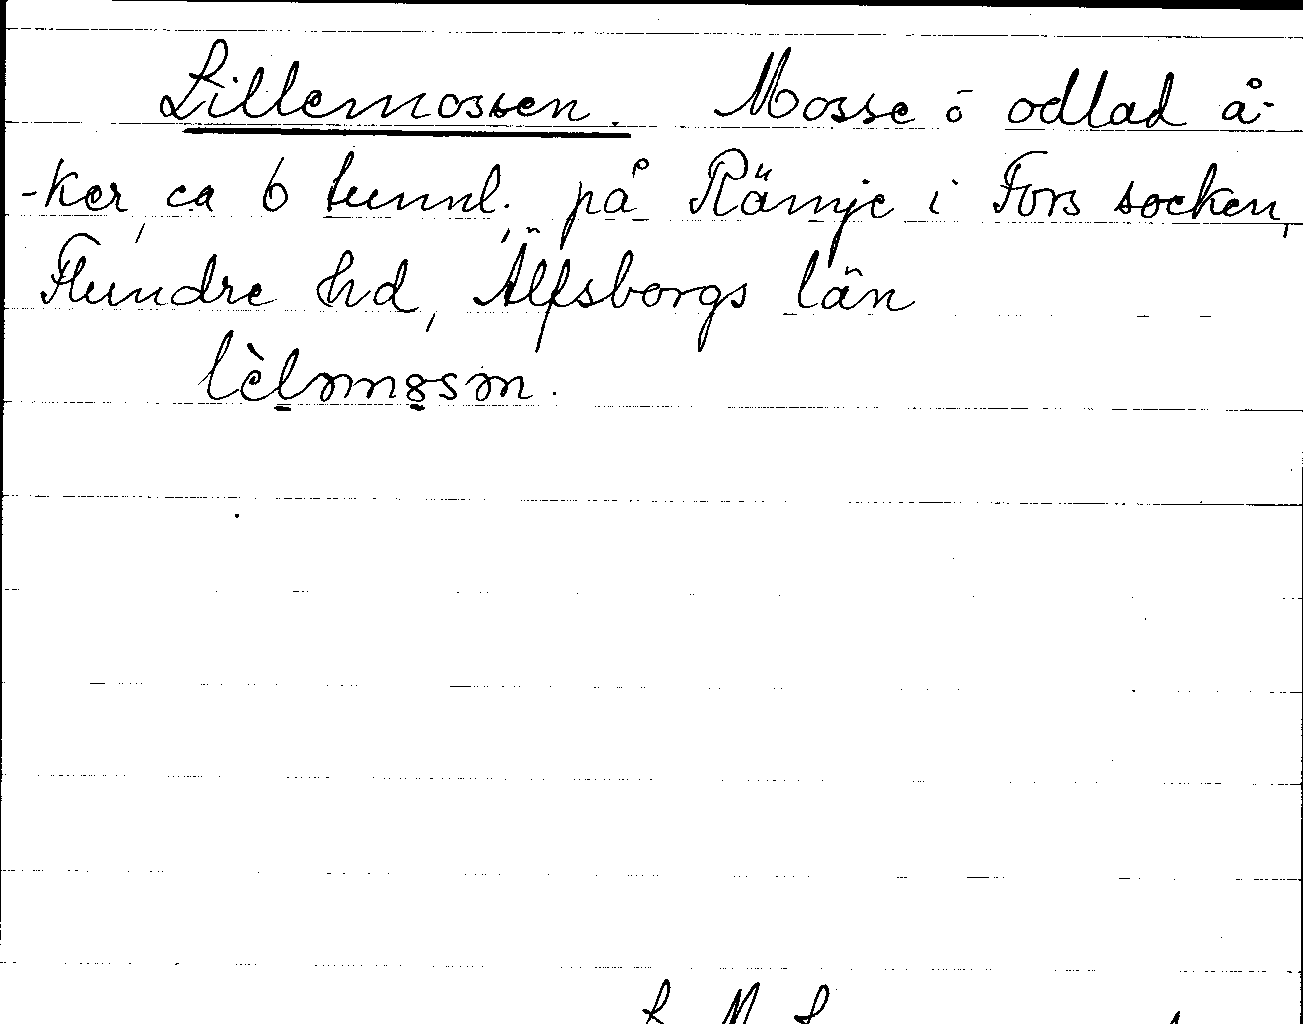 Lillemossen. Mosse o odlad å-
-ker, ca 6 tunnl., på Rämje i Fors socken,
Flundre hd, Älfsborgs län